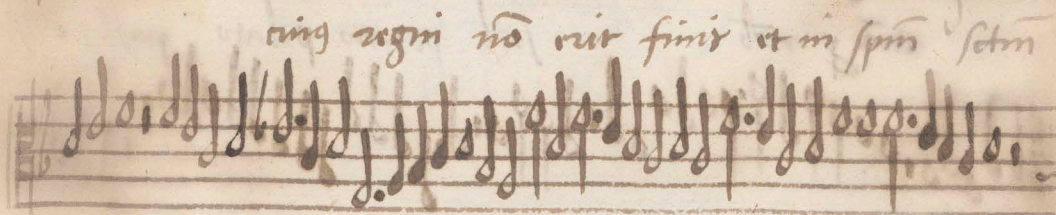 cuiꝰ regni nõ erit finis et in spm̃ sctm̃